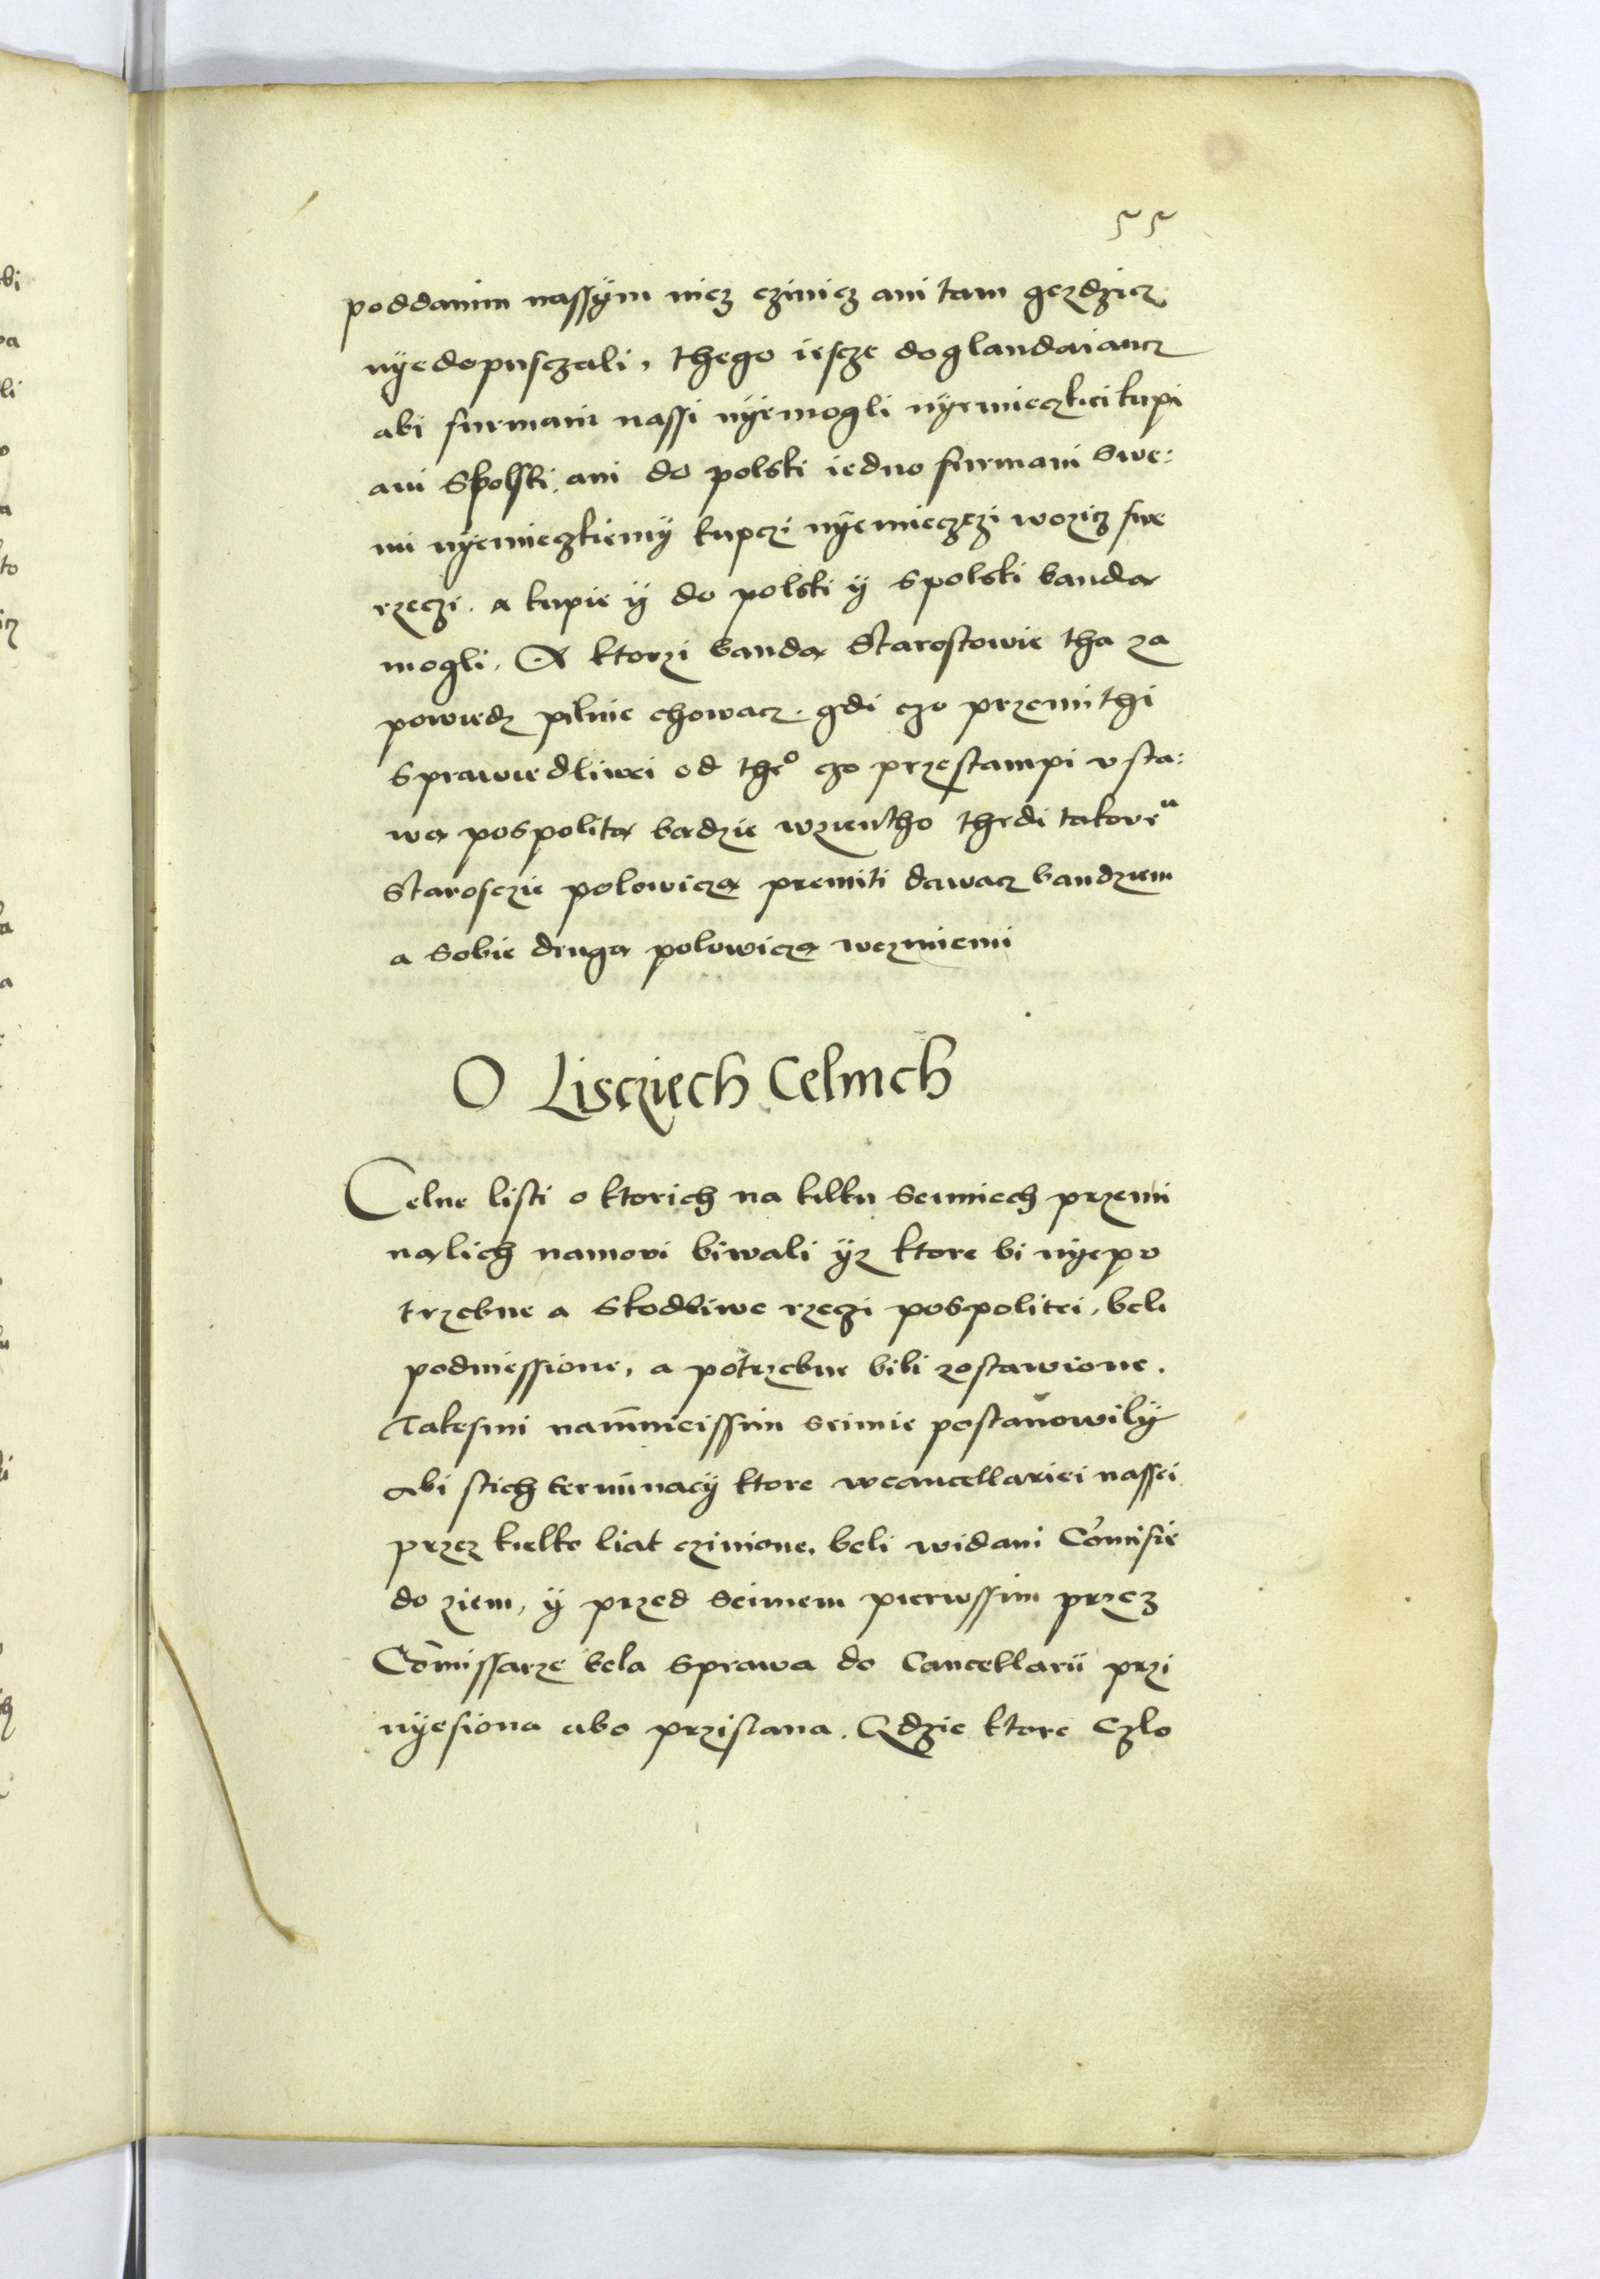 55
poddanim nassÿm nicz czinicz ani tam gezdzicz
nÿedopusczali, thego iescze doglandaiancz
abi furmani nassi nÿemogli nÿemieczkiei kupi
ani Spolski, ani do polski iedno furmani swe:
mi nÿemieczkiemÿ kupczi nÿemieczczi wozicz swe
rzeczi. a kupie ÿ do polski ÿ spolski banda
mogli. A ktorzi banda Starostowie tha za
powiedz pilnie chowacz. gdi czo przemithi
sprawiedliwei od the° czo przestampi vsta:
wa pospolita badzie wzientho thedi takoveᵘ
Starosczie polowicza premiti dawacz bandziem
a sobie druga polowicza wezmiemi
O Lisciech Celnich
Celne listi o ktorich na kilku seimiech przemi
nalich namovi biwali ÿz ktore bi nÿepo
trzebne a skodliwe rzeczi pospolitei, beli
podniessione, a potrzebne bili zostawione.
Takesmi namnieissim seimie postanowilÿ
abi stich terminacÿ ktore wcancellariei nassei
przez kielko liat czinione, beli widani Comisie
do ziem, ÿ przed seimem pierwssim przez
Comissarze bela sprawa do Cancellarii przi
nÿesiona abo przislana. Gdzie ktore czlo